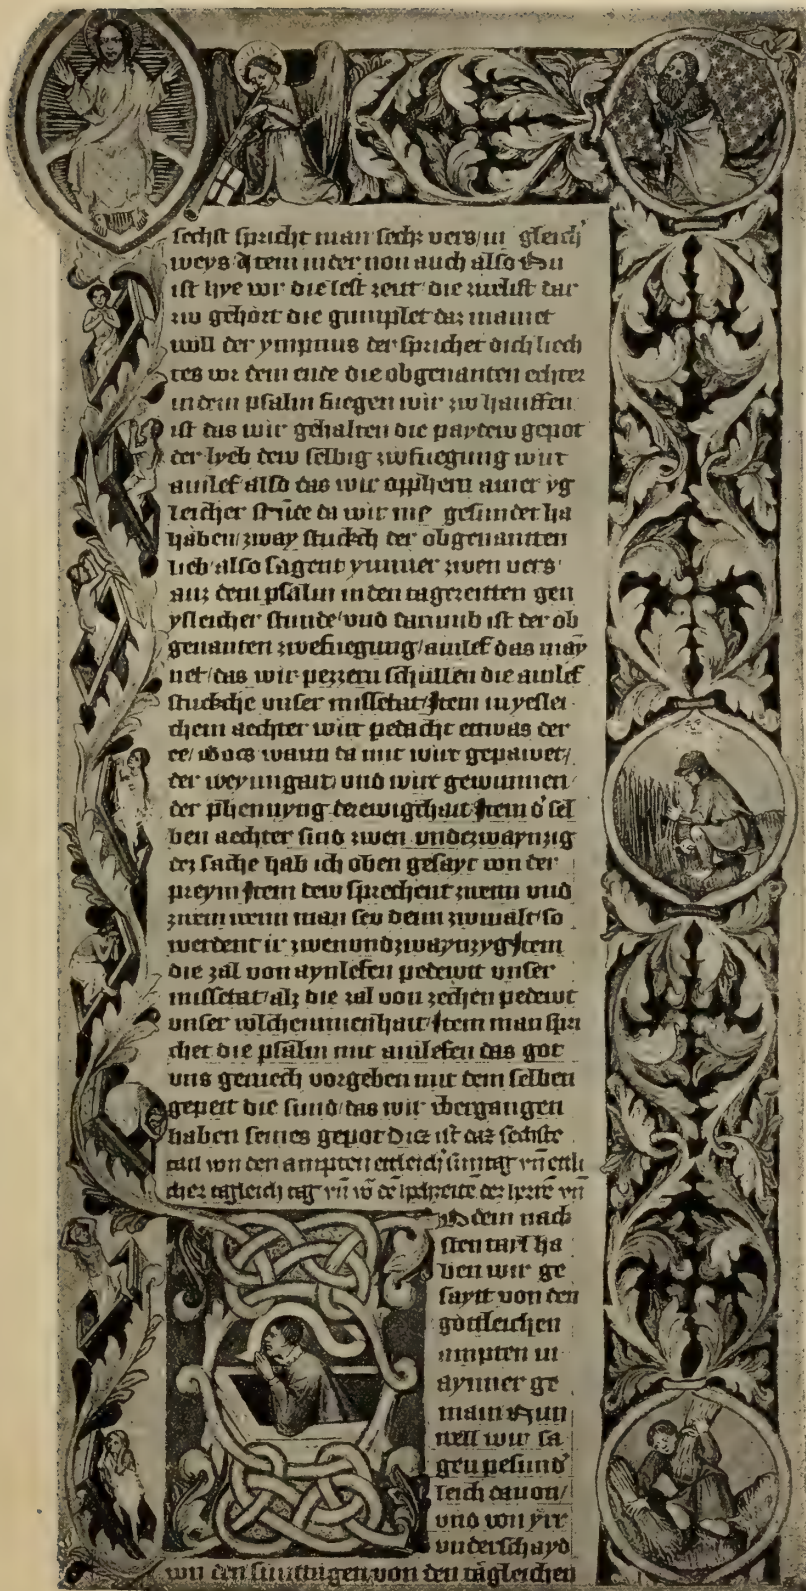 sechst spricht man sechs vers/in gleich
weys Item in der non auch also Nu
ist hye vor die lest zeit die zuelist dar
zw gehört die gumplet daz mainet
woll der ympnus der sprichet dich liech
tes vor dem ende die obgenanten echter
in dem psalm fuegen wir zw hauffen
ist das wir gehalten die paydew gepot
der lyeb dew selbig zwfuegung wirt
ainlef also das wir opphern ainer yg
leicher stūde da wir nye gesundet ha
haben/zway stuckch der obgenantten
lieb/also sagent ymmer zwen vers
auz dem psalm in den tagzeitten gen
ysleicher stunde/und darumb ist der ob
genanten zwefuegung/ainlef das may
net/das wir pezzern schullen die ainlef
stuckche unser missetat/Item in yeslei
chem aechter wirt pedacht ettwas der
ee/Gots wann da mit wirt gepawet/
der weyngart/und wirt gewunnen
der phennyng der ewigchait Item d' sel
ben aechter sind zwen undzwaynzig
der sache hab ich oben gesayt von der
preym Item dew sprechent zwenn und
zwein wenn man sev denn zwivalt/so
werdent ir zwenundzwaynzyg Item
die zal von aynlefen pedewtt unser
missetat/alz die zal von zechen pedewt
unser volchemmenhait/Item man spri
chet die psalm mit ainlefen das got
uns geruech vorgeben mit dem selben
gepett die sund/das wir übergangen
haben seines gepot Diz ist daz sechste
tail von den ampten ettleich' suntag vn̄ ettli
cher tagleich tag vn̄
N dem nach
sten tayl ha
ben wir ge
saytt von den
göttleichen
ampten in
aynner ge
main Nun
well wir sa
gen pesund'
leich davon/
und von yrr
underschayd
von den suntagen von den tägleichen